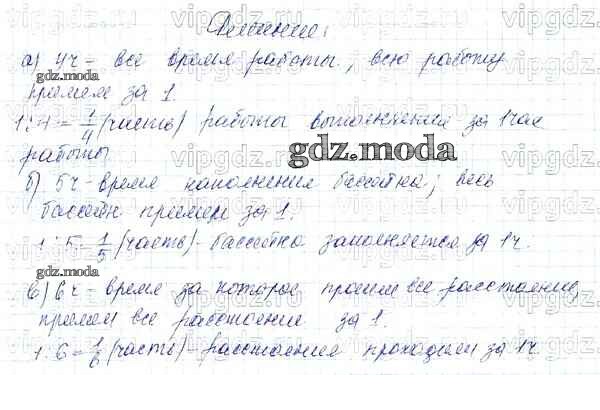 Решение:
а) 4ч - все время работы, всю работу
примем за 1.
1:4 = 1/4 (часть) работы выполняется за 1 час
работы
б) 5ч - время наполнения бассейна; весь
бассейн примем за 1.
1:5 = 1/5 (часть) - бассейна заполняется за 1ч.
в) 6ч - время за которое прошли все расстояние,
примем все расстояние за 1.
1:6 = 1/6 (часть) - расстояния проходили за 1ч.
gdz.moda
gdz.moda
gdz.moda
vipgdz.ru